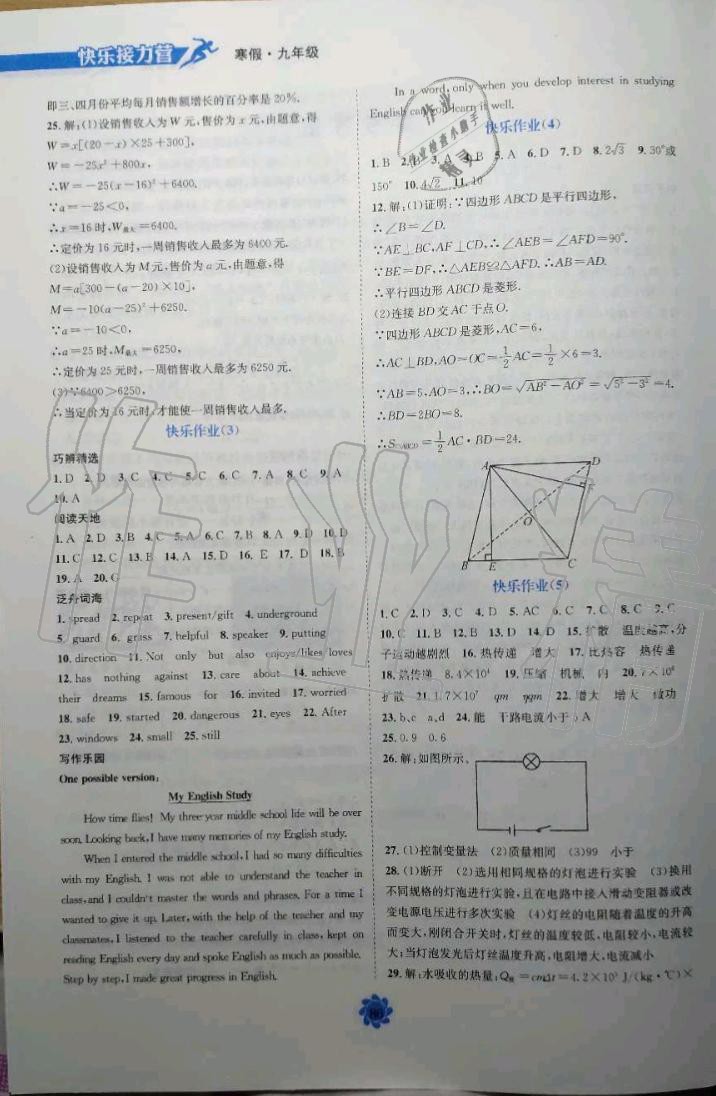 快乐接力营
寒假·九年级
即三、四月份平均每月销售额增长的百分率是20%.
25.解:(1)设销售收入为W元,售价为x元,由题意,得
W=x[(20-x)×25+300],
W=-25x²+800x,
∴W=-25(x-16)²+6400.
∵a=-25<0,
∴x=16时,W最大=6400.
∴定价为16元时,一周销售收入最多为6400元.
(2)设销售收入为M元,售价为a元,由题意,得
M=a[300-(a-20)×10],
M=-10(a-25)²+6250.
∵a=-10<0,
∴a=25时,M最大=6250,
∴定价为25元时,一周销售收入最多为6250元.
(3)∵6400>6250,
∴当定价为16元时,才能使一周销售收入最多.
快乐作业(3)
巧辨精选
1.D 2.D 3.C 4.C 5.C 6.C 7.A 8.C 9.A
10.A
阅读天地
1.A 2.D 3.B 4.C 5.A 6.C 7.B 8.A 9.D 10.D
11.C 12.C 13.B 14.A 15.D 16.E 17.D 18.B
19.A 20.C
泛舟词海
1. spread 2. repeat 3. present/gift 4. underground
5. guard 6. grass 7. helpful 8. speaker 9. putting
10. direction 11. Not only but also enjoys/likes/loves
12. has nothing against 13. care about 14. achieve
their dreams 15. famous for 16. invited 17. worried
18. safe 19. started 20. dangerous 21. eyes 22. After
23. windows 24. small 25. still
写作乐园
One possible version:
My English Study
How time flies! My three-year middle school life will be over
soon. Looking back, I have many memories of my English study.
When I entered the middle school, I had so many difficulties
with my English. I was not able to understand the teacher in
class, and I couldn't master the words and phrases. For a time I
wanted to give it up. Later, with the help of the teacher and my
classmates, I listened to the teacher carefully in class, kept on
reading English every day and spoke English as much as possible.
Step by step, I made great progress in English.
In a word, only when you develop interest in studying
English can you learn it well.
快乐作业(4)
1.B 3.A 4.B 5.A 6.D 7.D 8.2√3 9.30°或
150° 10.4√2 11.10
12.解:(1)证明:∵四边形ABCD是平行四边形,
∴∠B=∠D.
∵AE⊥BC,AF⊥CD,∴∠AEB=∠AFD=90°.
∵BE=DF,∴△AEB≌△AFD.∴AB=AD.
∴平行四边形ABCD是菱形.
(2)连接BD交AC于点O.
∵四边形ABCD是菱形,AC=6,
∴AC⊥BD,AO=OC=1/2AC=1/2×6=3.
∵AB=5,AO=3,∴BO=√(AB²-AO²)=√(5²-3²)=4.
∴BD=2BO=8.
∴S▱ABCD=1/2AC·BD=24.
A D F O B E C
快乐作业(5)
1.C 2.D 3.C 4.D 5.AC 6.C 7.C 8.C 9.C
10.C 11.B 12.B 13.D 14.D 15.扩散 温度越高,分
子运动越剧烈 16.热传递 增大 17.比热容 热传递
18.热传递 8.4×10⁴ 19.压缩 机械 内
扩散 qm ηqm 22.增大 增大 做功
23.b、c a、d 24.能 干路电流小于 A
25.0.9 0.6
26.解:如图所示.
27.(1)控制变量法 (2)质量相同 (3)99 小于
28.(1)断开 (2)选用相同规格的灯泡进行实验 (3)换用
不同规格的灯泡进行实验,且在电路中接入滑动变阻器或改
变电源电压进行多次实验 (4)灯丝的电阻随着温度的升高
而变大,刚闭合开关时,灯丝的温度较低,电阻较小,电流较
大;当灯泡发光后灯丝温度升高,电阻增大,电流减小
29.解:水吸收的热量:Q吸=cmΔt=4.2×10³ J/(kg·℃)×